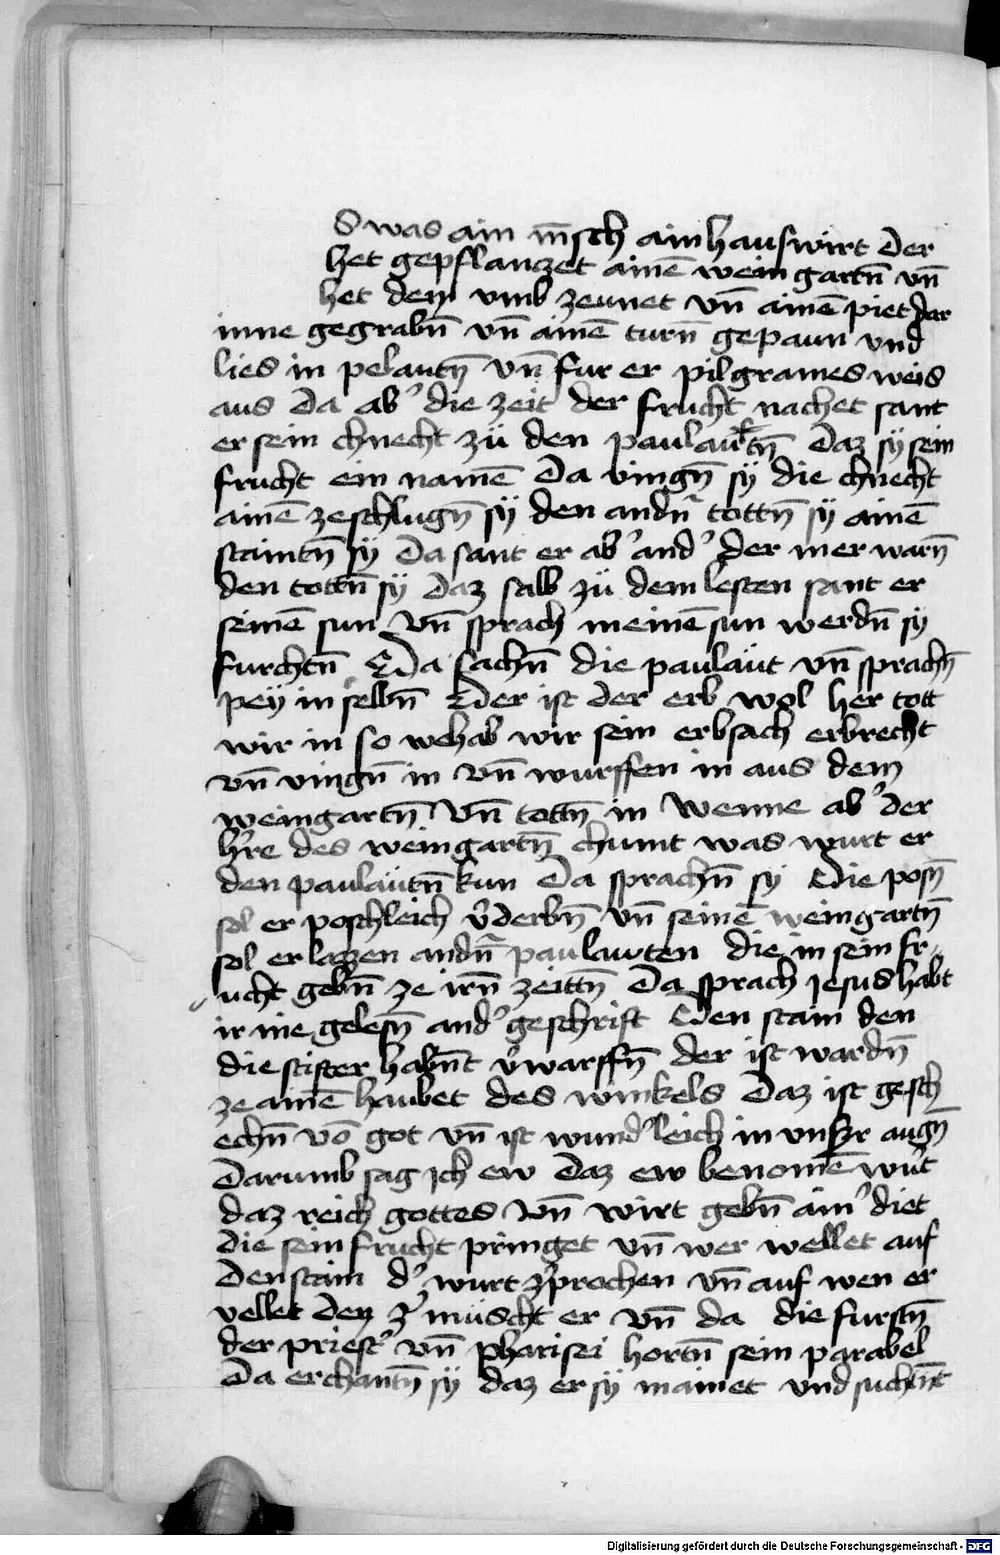 S was ain m̄sch ain hauswirt Der
het gepflanczet ainē weingartn̄ vn̄
het den vmb zeunet vn̄ ainē piet dar
inne gegrabn̄ vn̄ ainē turn̄ gepaun vnd
lies in pelautn̄ vn̄ fur er pilgrames weis
aus Da ab' die zeit der frucht nachet sant
er sein chnecht zü den paulautn̄ Daz sÿ sein
frucht ein namē Da vingn̄ sÿ die chnecht
ainē zeschlugn̄ sÿ den andn̄ tottn̄ sÿ ainē
staintn̄ sÿ Da sant er ab' and' der mer warn̄
den tottn̄ sÿ Daz salb zü dem lesten sant er
seinē sun Vn̄ sprach meinē sun werdn̄ sÿ
furchtn̄ Da sachn̄ die paulaüt vn̄ sprachn̄
peÿ in selbn̄ Der ist der erb wol her tott
wir in so wehab wir sein erbsach erbrecht
vn̄ vingn̄ in vn̄ wurffen in aus dem
weingartn̄ Vn̄ tottn̄ in Wenne ab' der
h're des weingartn̄ chumt was wurt er
den paulaütn̄ kun Da sprachn̄ sÿ Die posn̄
sol er poschleich v'derbn̄ vn̄ seinē weingartn̄
sol er lazzen andn̄ paulawten die in sein fr
ucht gebn̄ ze irn̄ zeittn̄ Da sprach Jesus habt
ir nie gelesn̄ and' geschrift Den stain den
die stifter habn̄t v'warffn̄ der ist wardn̄
ze ainē haubet des winkels Daz ist gesch
echn̄ vō got vn̄ ist wund'leich in vnser augn̄
Darumb sag ich ew Daz ew benomē wu't
daz reich gottes Vn̄ wirt gebn̄ aim' diet
die sein frucht pringet vn̄ wer wellet auf
Den stain d' wurt z'prochen vn̄ auf wen er
vellet den z' müscht er vn̄ da die furstn̄
der priest' vn̄ pharisei hortn̄ sein parabel
Da erchantn̄ sÿ daz er sÿ mainet vnd suchtn̄t
Digitalisierung gefördert durch die Deutsche Forschungsgemeinschaft - DFG